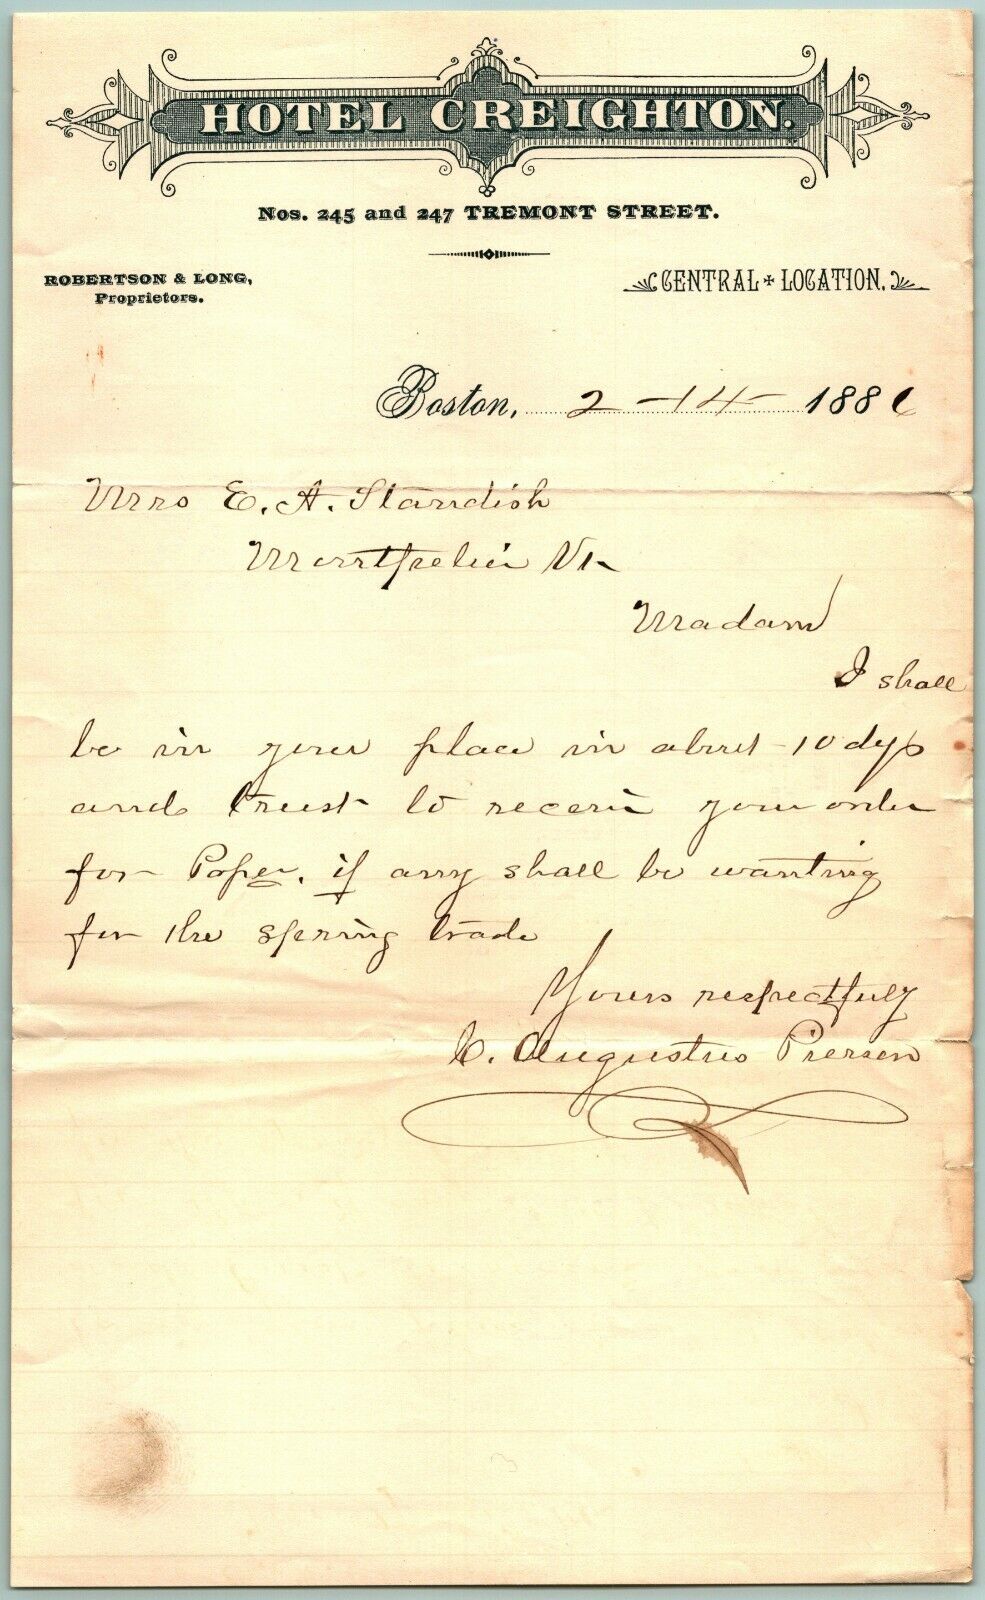 HOTEL CREIGHTON.
Nos. 245 and 247 TREMONT STREET.
ROBERTSON & LONG,
Proprietors.
CENTRAL + LOCATION.
Boston, 2-14- 1886
Mrs E. A. Standish
Montpelier Vt
Madam
I shall
be in your place in about 10 dys
and trust to receive your order
for Paper, if any shall be wanting
for the spring trade
Yours respectfully
C. Augustus Pierson